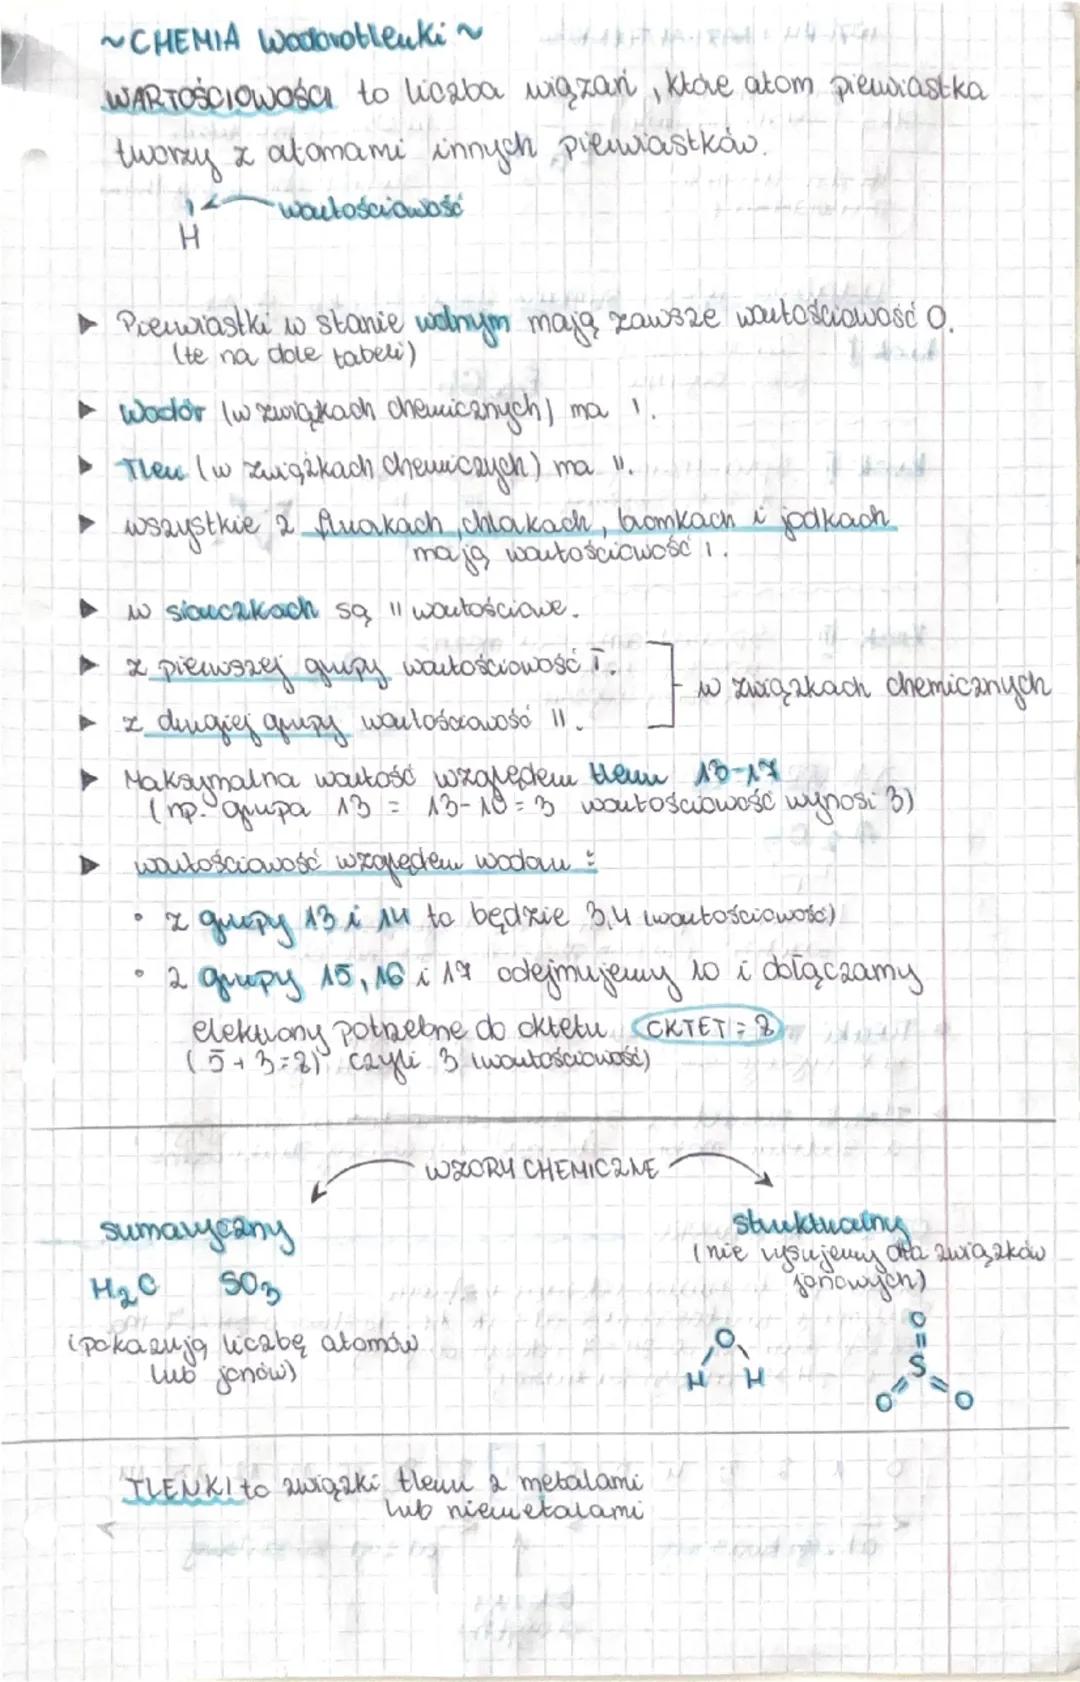 ~CHEMIA Wodorotlenki~
WARTOŚCIOWOŚCI to liczba wiązań, które atom pierwiastka
tworzy z atomami innych pierwiastków.
I wartościowość
H
▶ Pierwiastki w stanie wolnym mają zawsze wartościowość 0.
(te na dole tabeli)
▶ Wodór (w związkach chemicznych) ma I.
▶ Tlen (w związkach chemiczych) ma II.
▶ wszystkie z fluorkach, chlorkach, bromkach i jodkach
mają wartościowość I.
▶ w siarczkach są II wartościowe.
▶ z pierwszej grupy wartościowość I.
w związkach chemicznych
▶ z drugiej grupy wartościowość II.
▶ Maksymalna wartość względem tlenu 13-17
(np. grupa 13 = 13-10=3 wartościowość wynosi 3)
▶ wartościowość względem wodoru:
• z grupy 13 i 14 to będzie 3,4 (wartościowość)
• z grupy 15, 16 i 17 odejmujemy 10 i dołączamy
elektrony potrzebne do oktetu OKTET = 8
(5+3=8) czyli 3 (wartościowość)
WZORY CHEMICZNE
sumaryczny
strukturalny
(nie rysujemy dla związków
jonowych)
H₂O SO₃
(pokazują liczbę atomów
lub jonów)
O
H H
O
S
O O
TLENKI to związki tlenu z metalami
lub niemetalami